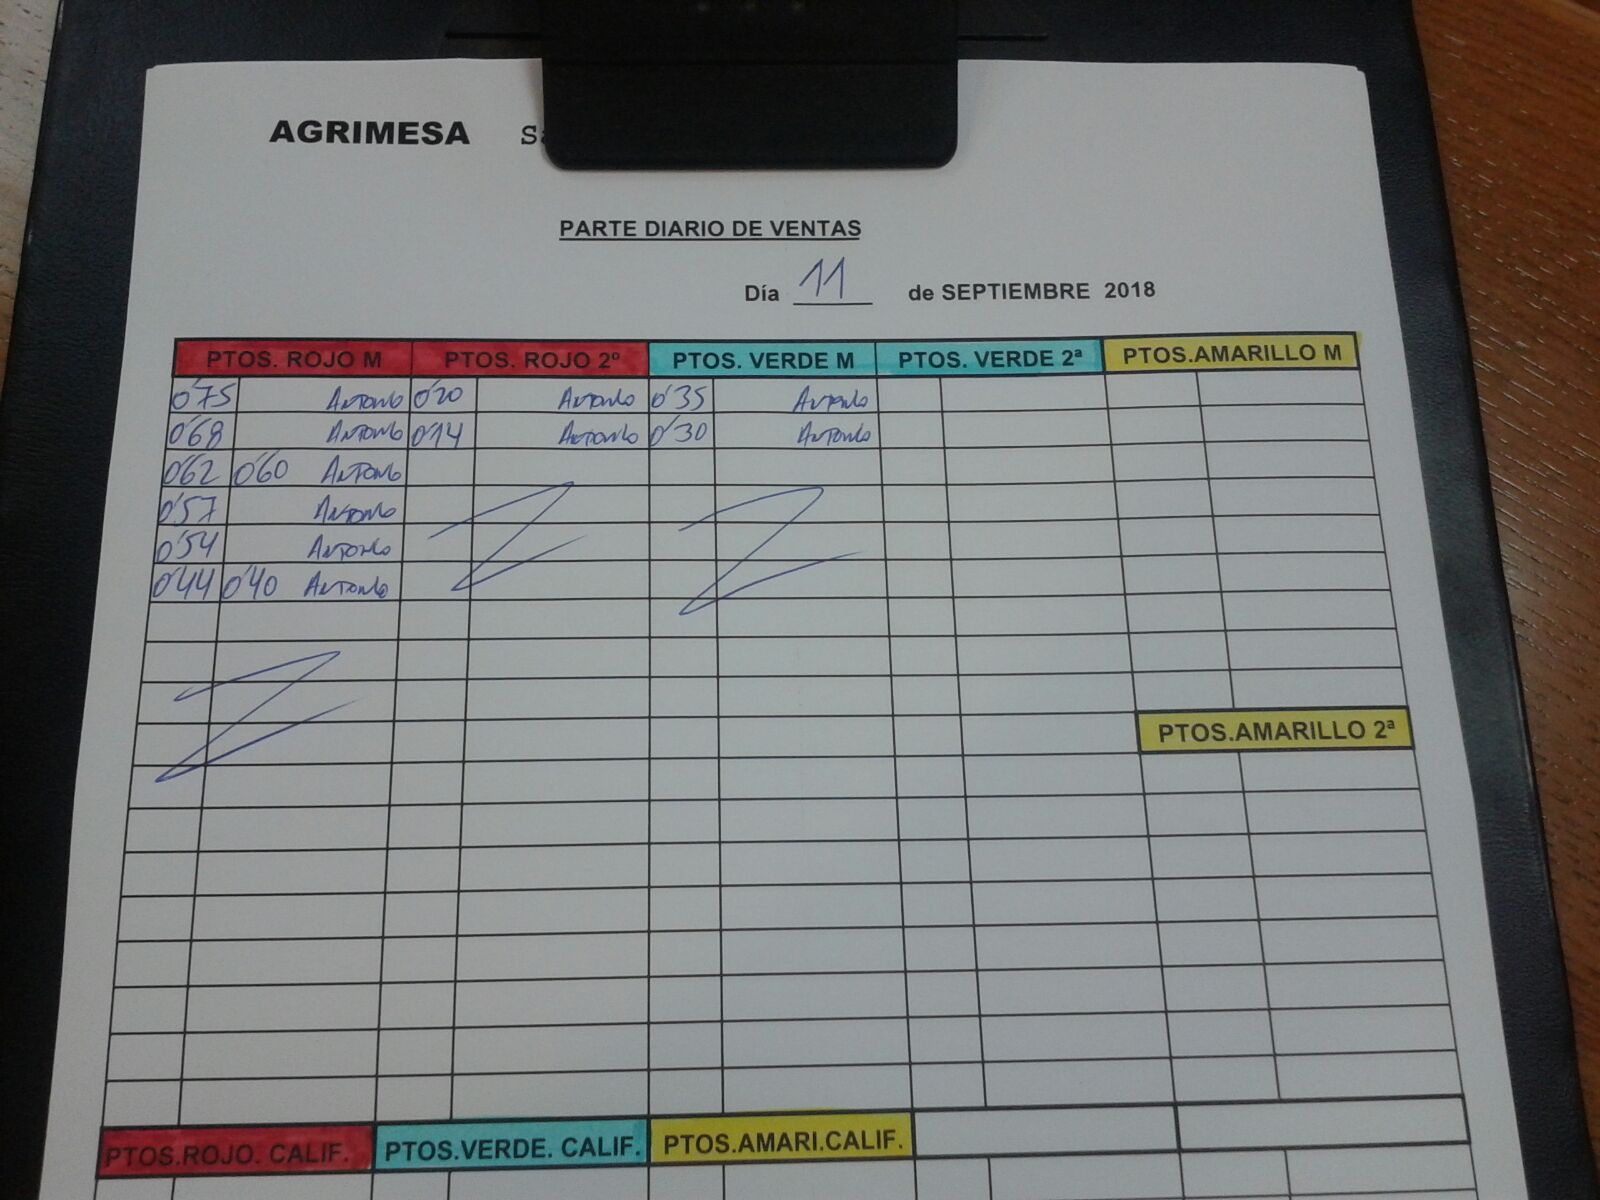 AGRIMESA
PARTE DIARIO DE VENTAS
Día 11 de SEPTIEMBRE 2018
PTOS. ROJO M PTOS. ROJO 2º PTOS. VERDE M PTOS. VERDE 2ª PTOS.AMARILLO M
0'75 Antonio 0'20 Antonio 0'35 Antonio
0'68 Antonio 0'14 Antonio 0'30 Antonio
0'62 0'60 Antonio
0'57 Antonio
0'54 Antonio
0'44 0'40 Antonio
PTOS.AMARILLO 2ª
PTOS.ROJO. CALIF. PTOS.VERDE. CALIF. PTOS.AMARI.CALIF.